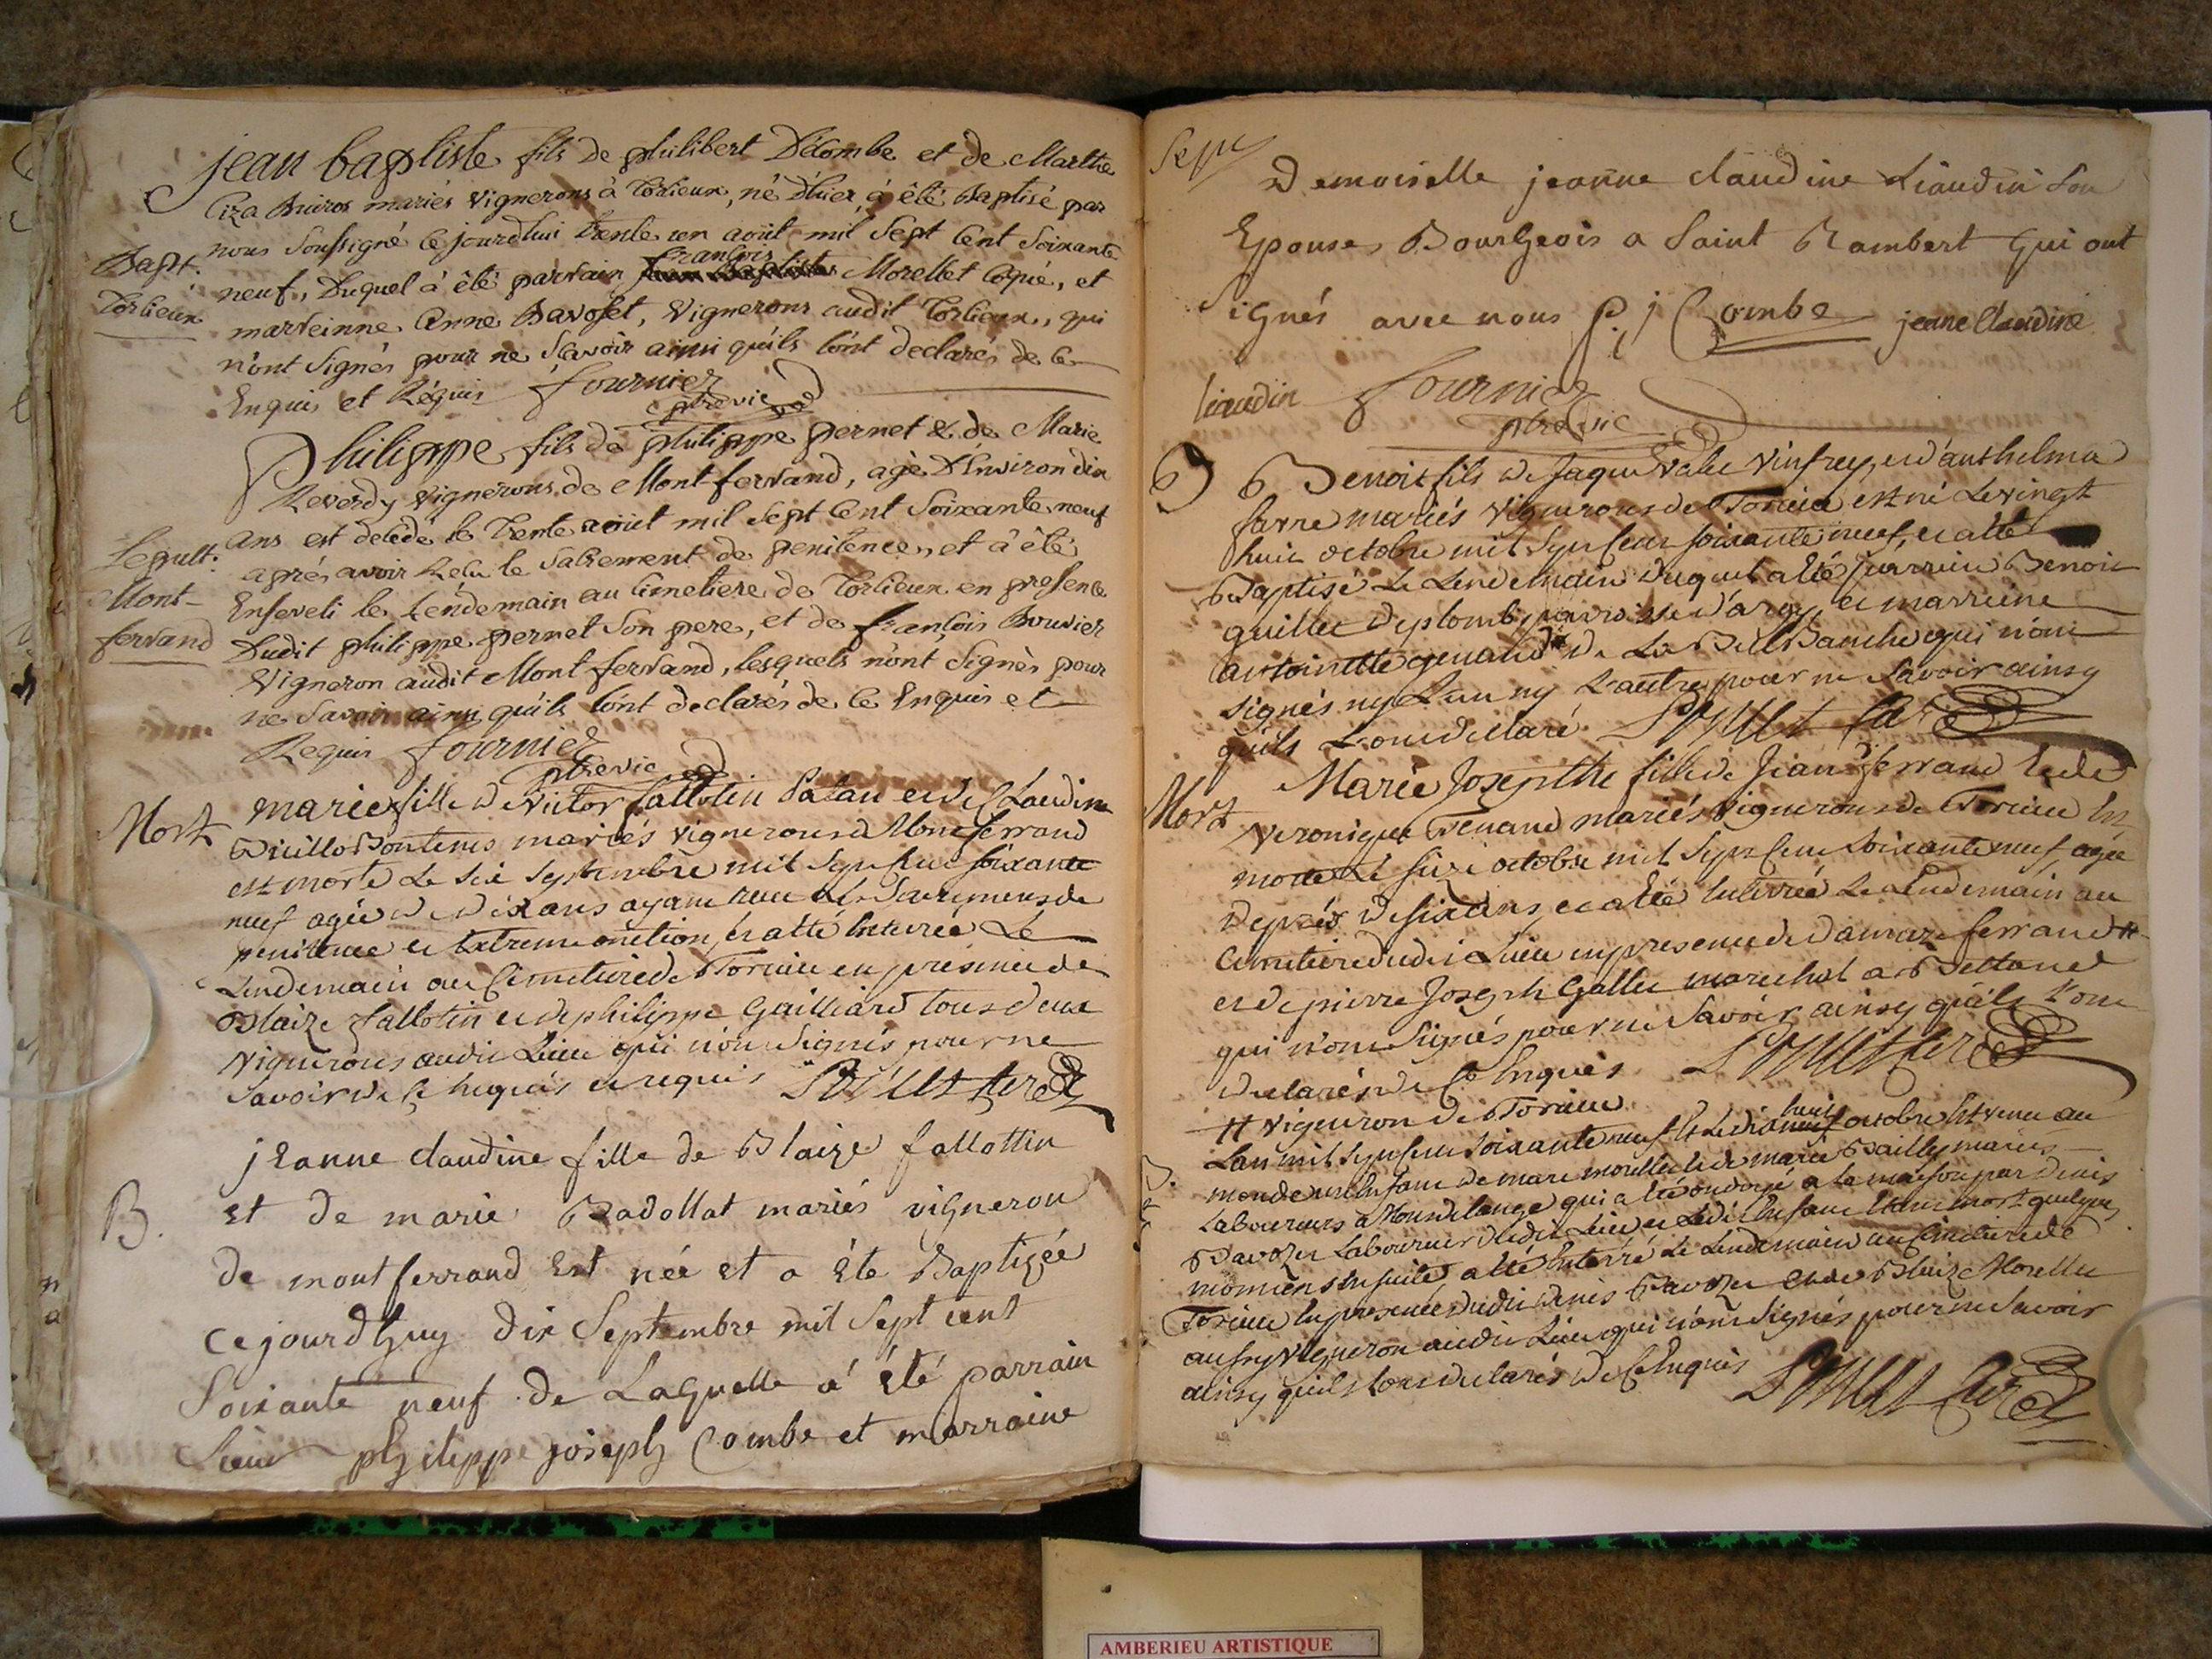 jean baptiste fils de philibert Décombe et de Marthe
Ciza Buiros mariés vignerons à Torlieux, né d'hier, à êté Baptisé par
nous Soussigné ce jourdhui trente un août mil Sept Cent Soixante
françois
neuf, Duquel à êté parrain Jean Baptiste Morellet Copié, et
Bapt.
Torlieux
marreinne Anne Bavoset, Vignerons audit Torlieux, qui
n'ont Signés pour ne Scavoir ainsi qu'ils l'ont declarés de ce
Enquis et Réquis fournier
ptre vic
Philippe fils de philippe pernet & de Marie
Reverdy vignerons de Montferrand, agé D'environ dix
ans est decédé le trente août mil Sept Cent Soixante neuf
Sepult:
Mont-
ferrand
aprés avoir Recu le Sacrement de penitence, et à êté
Enseveli le Lendemain au Cimetiere de Torlieux en presence
Dudit philippe pernet Son pere, et de françois Bouvier
Vigneron audit Montferrand, lesquels n'ont Signés pour
ne Savoir ainsi qu'ils l'ont declarés de ce Enquis et
Requis fournier
ptre vic
Mort
marie fille de Victor fallotin et de Claudine
mariés vignerons de Montferrand
est morte Le six Septembre mil Sept Cent soixante
neuf agée de dix ans ayant recu les Sacremens de
penitence et Extreme onction, et a été Enterrée Le
Lendemain au Cimetiere de Torcieu en présence de
Blaize fallotin et de philippe Gailliard tous deux
Vignerons audit Lieu qui n'ont Signés pour ne
Savoir de ce Enquis et requis curé
B.
jeanne claudine fille de Blaize fallottin
et de marie Badollat mariés vigneron
de montferrand Est née et a Eté Baptizée
ce jourdhuy dix Septembre mil Sept cent
Soixante neuf de Laquelle a été parrain
Sieur philippe joseph Combe et marraine
Sepu
Demoiselle jeanne claudine Liaudin Son
Epouse Bourgeois a Saint Rambert qui ont
Signés avec nous P. j Combe jeane Claudine
liaudin fournier
ptre vic
B
Benoit fils de Jaque Vinfrey, et d'anthelma
favre mariés vignerons de Torcieu est né Le vingt
huit octobre mil Sept Cent soixante neuf, et a été
Baptisé Le Lendemain duquel a été parrain Benoit
guillet paroisse d'ary, et marreine
antoinette de La qui n'ont
signés ny L'un ny L'autre pour ne Savoir ainsy
qu'ils L'ont declaré curé
Mort
Marie Josephte fille de Jean ferrand et de
Veronique Venand mariés Vignerons de Torcieu Est
morte Le seize octobre mil Sept Cent Soixante neuf, agée
de près de six ans, et a été Enterrée Le Lendemain au
Cimetiere dudit Lieu en presence de damaze ferrand #
et de pierre Joseph Gallet marechal a Bettant
qui n'ont Signés pour ne Savoir ainsy qu'ils l'ont
declarés de Ce Enquis curé
# vigneron de Torcieu
huit
Lan mil Sept Cent soixante neuf et Le dix neuf octobre Est venu au
monde un Enfant de marc morellet et de marie Bailly mariés
Laboureurs a Montdelange qui a été ondoyé a la maison par Denis
Bavozet Laboureur dudit Lieu et Ledit Enfant Etant mort quelques
momens Ensuite, a été Enterré Le Lendemain au Cimetiere de
Torcieu En presence dudit Denis Bavozet et de Blaize Morellet
aussy vigneron audit Lieu qui n'ont Signés pour ne Savoir
ainsy qu'ils l'ont declarés de Ce Enquis curé
AMBERIEU ARTISTIQUE